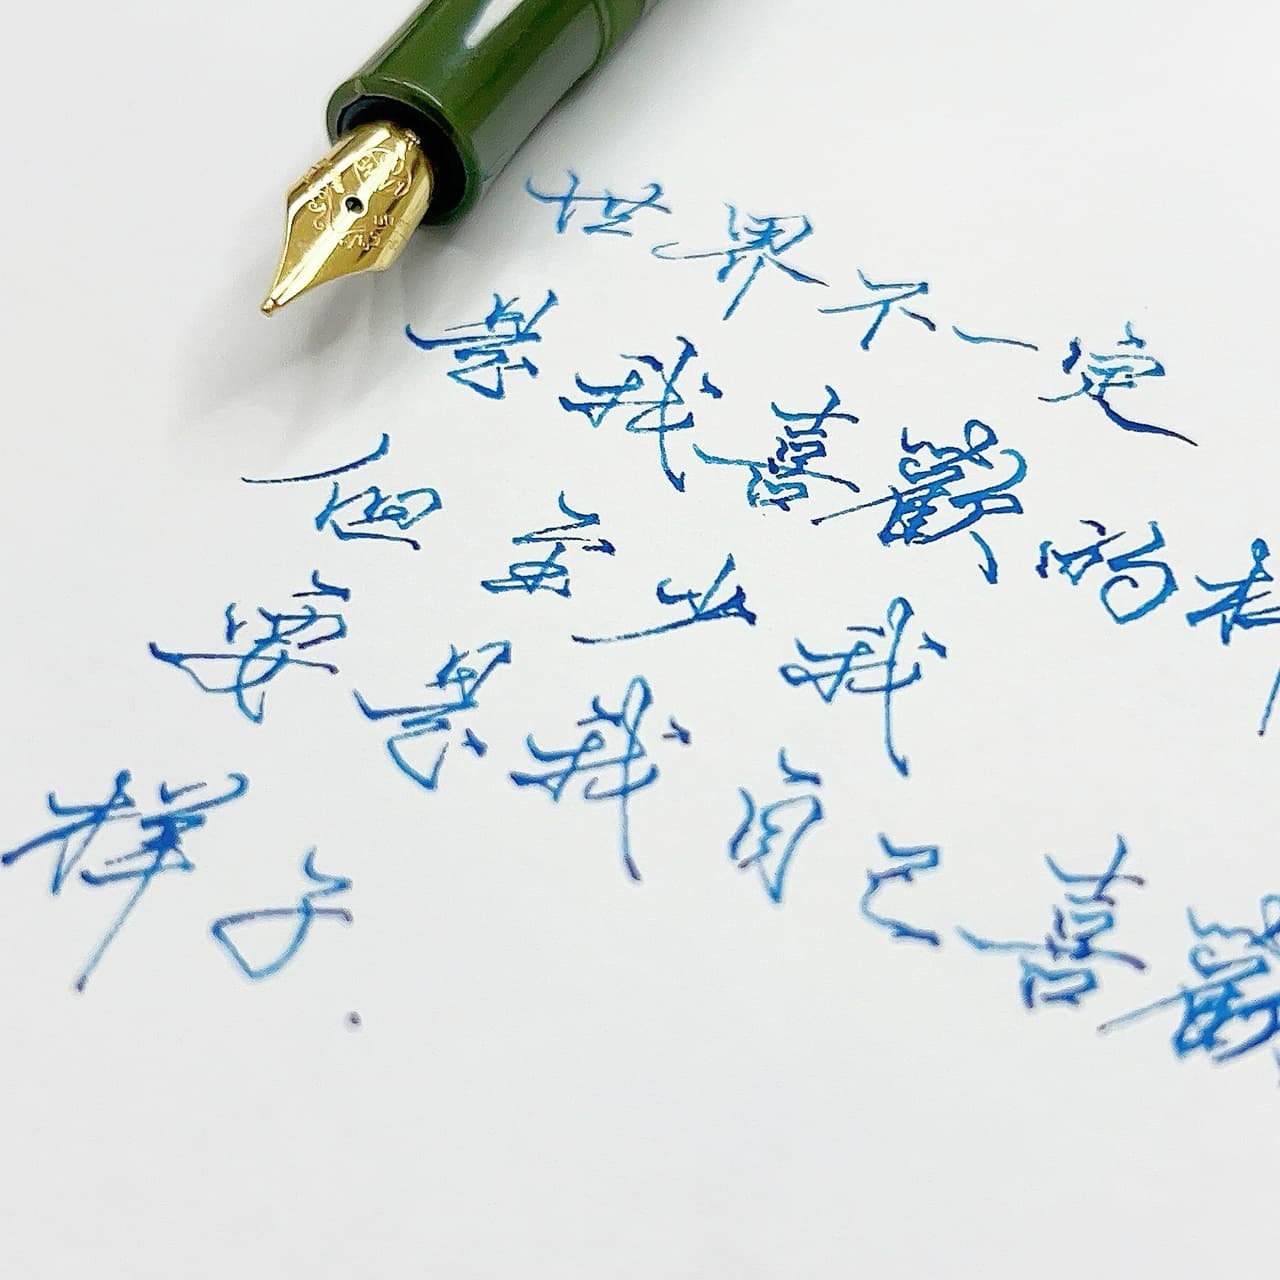 世界不一定
是我喜歡的样
但至少我
要是我自己喜歡
样子.